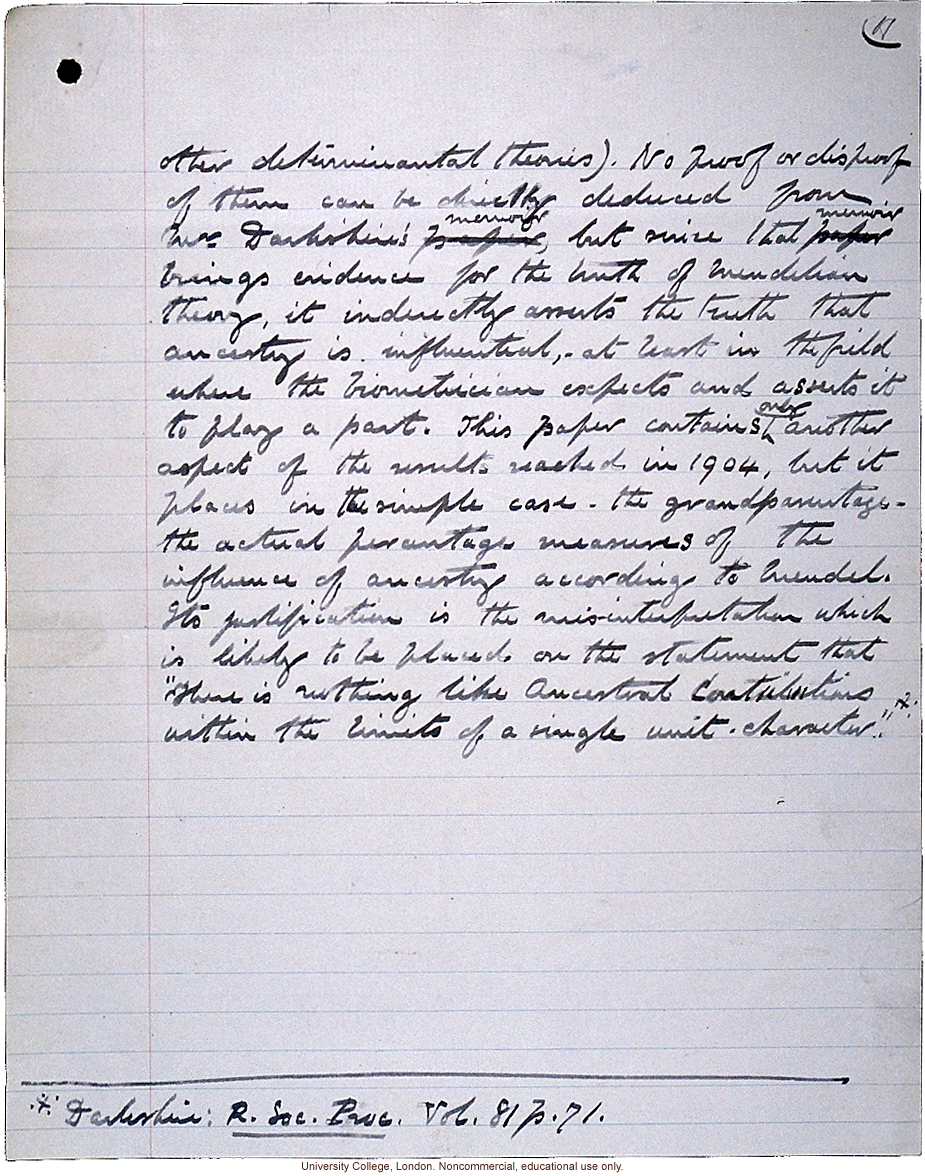 other determinantal theories). No proof or disproof
of them can be directly deduced from
memoir memoir
Mr Darbishire's paper, but since that paper
brings evidence for the truth of Mendelian
theory, it indirectly asserts the truth that
ancestry is influential, - at least in the field
where the biometrician expects and asserts it
only
to play a part. This paper contains another
aspect of the results reached in 1904, but it
places in the simple case - the grandparentage -
the actual percentage measures of the
influence of ancestry according to Mendel.
Its justification is the misinterpretation which
is likely to be placed on the statement that
"There is nothing like Ancestral Contributions
within the limits of a single unit-character".*
* Darbishire: R. Soc. Proc. Vol. 81 p. 71.
University College, London. Noncommercial, educational use only.